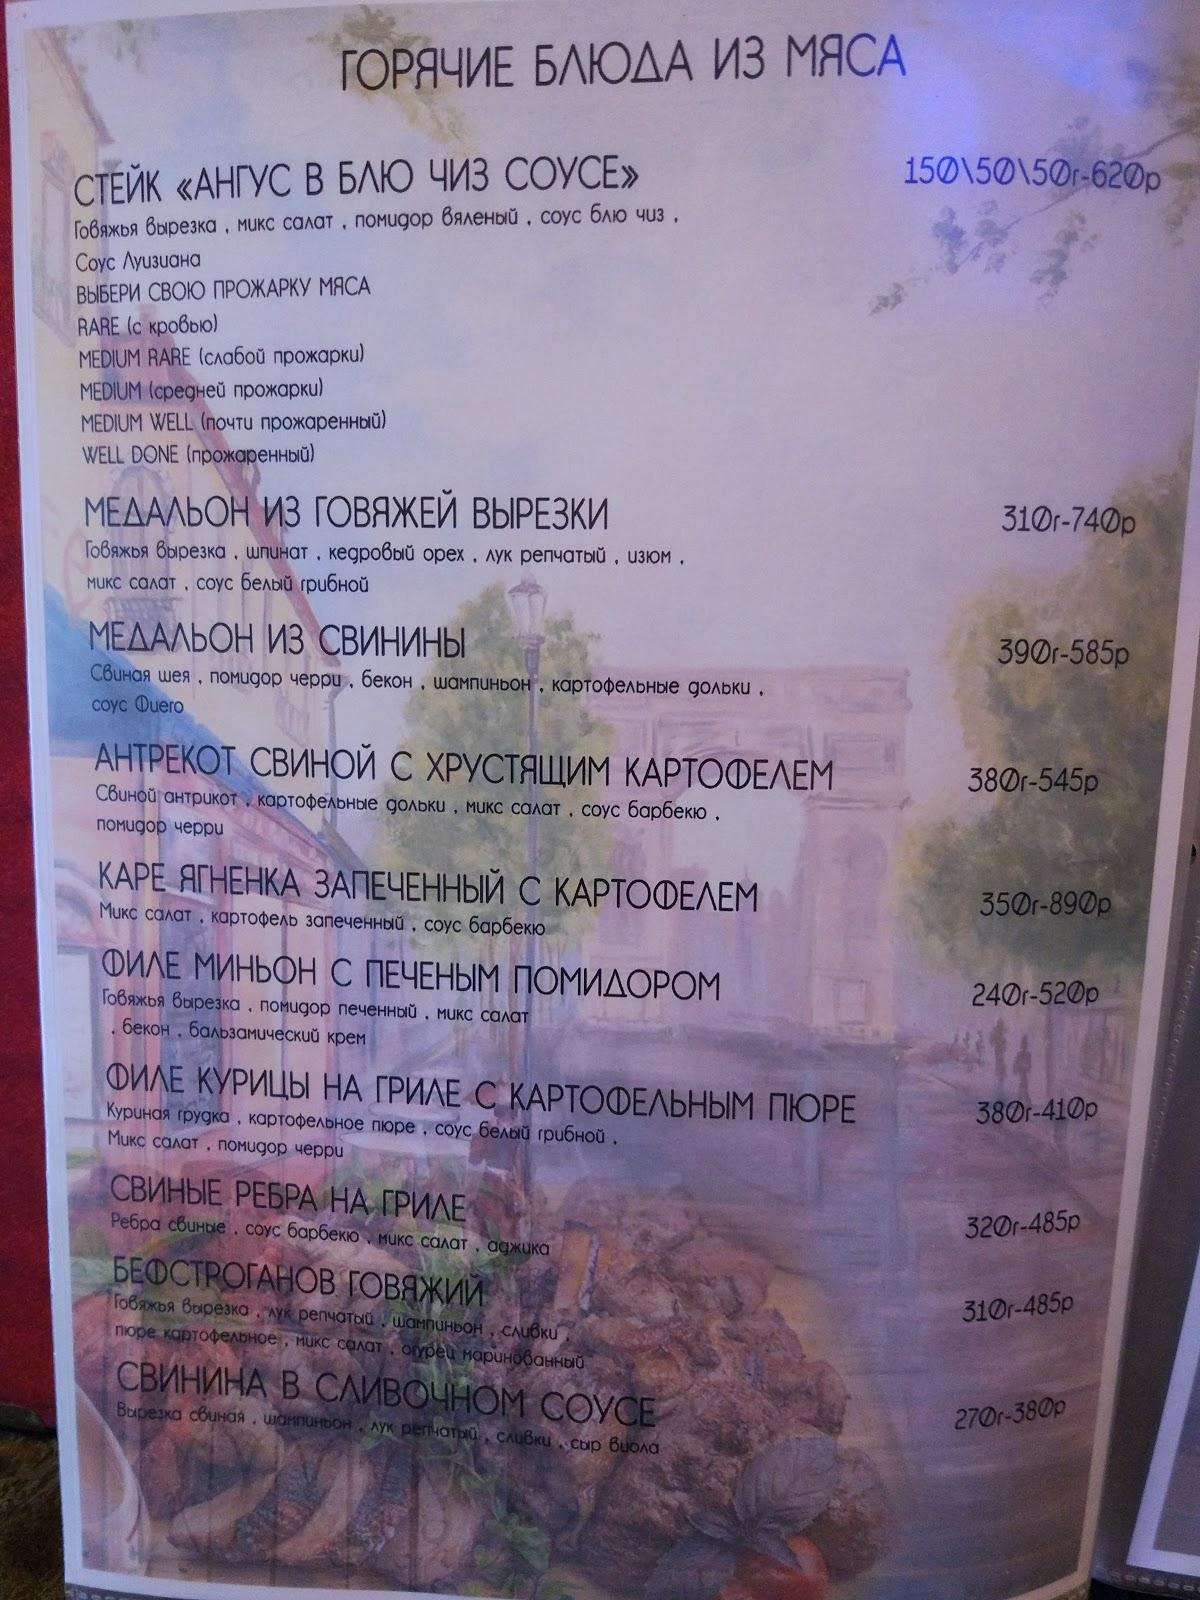 ГОРЯЧИЕ БЛЮДА ИЗ МЯСА
СТЕЙК «АНГУС В БЛЮ ЧИЗ СОУСЕ» 150\50\50г-620р
Говяжья вырезка , микс салат , помидор вяленый , соус блю чиз ,
Соус Луизиана
ВЫБЕРИ СВОЮ ПРОЖАРКУ МЯСА
RARE (с кровью)
MEDIUM RARE (слабой прожарки)
MEDIUM (средней прожарки)
MEDIUM WELL (почти прожаренный)
WELL DONE (прожаренный)
МЕДАЛЬОН ИЗ ГОВЯЖЕЙ ВЫРЕЗКИ 310г-740р
Говяжья вырезка , шпинат , кедровый орех , лук репчатый , изюм ,
микс салат , соус белый грибной
МЕДАЛЬОН ИЗ СВИНИНЫ 390г-585р
Свиная шея , помидор черри , бекон , шампиньон , картофельные дольки ,
соус Фиего
АНТРЕКОТ СВИНОЙ С ХРУСТЯЩИМ КАРТОФЕЛЕМ 380г-545р
Свиной антрикот , картофельные дольки , микс салат , соус барбекю ,
помидор черри
КАРЕ ЯГНЕНКА ЗАПЕЧЕННЫЙ С КАРТОФЕЛЕМ 350г-890р
Микс салат , картофель запеченный , соус барбекю
ФИЛЕ МИНЬОН С ПЕЧЕНЫМ ПОМИДОРОМ 240г-520р
Говяжья вырезка , помидор печенный , микс салат
, бекон , бальзамический крем
ФИЛЕ КУРИЦЫ НА ГРИЛЕ С КАРТОФЕЛЬНЫМ ПЮРЕ 380г-410р
Куриная грудка , картофельное пюре , соус белый грибной ,
Микс салат , помидор черри
СВИНЫЕ РЕБРА НА ГРИЛЕ 320г-485р
Ребра свиные , соус барбекю , микс салат , аджика
БЕФСТРОГАНОВ ГОВЯЖИЙ 310г-485р
Говяжья вырезка , лук репчатый , шампиньон , сливки ,
пюре картофельное , микс салат , огурец маринованный
СВИНИНА В СЛИВОЧНОМ СОУСЕ 270г-380р
Вырезка свиная , шампиньон , лук репчатый , сливки , сыр виола